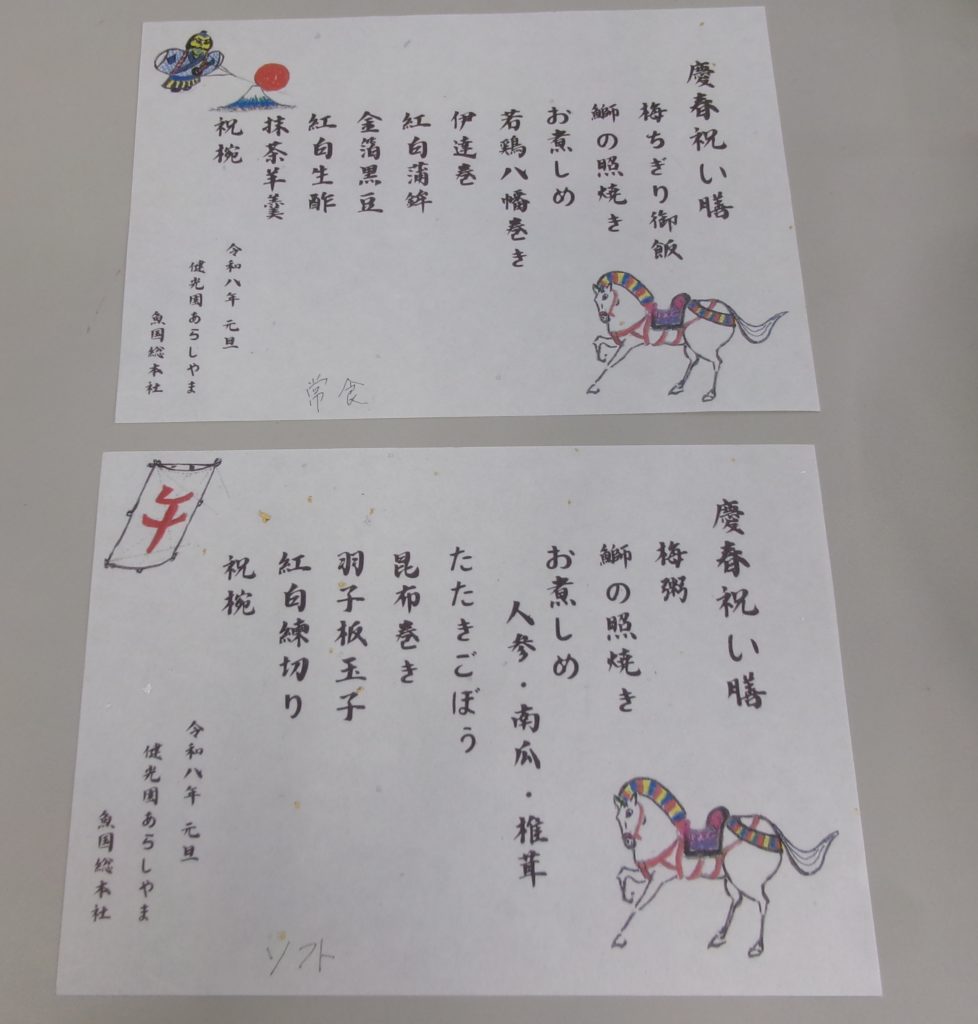 慶春祝い膳
梅ちぎり御飯
鰤の照焼き
お煮しめ
若鶏八幡巻き
伊達巻
紅白蒲鉾
金箔黒豆
紅白生酢
抹茶羊羹
祝椀
令和八年 元旦
健光園あらしやま
魚国総本社
常食
慶春祝い膳
梅粥
鰤の照焼き
お煮しめ
人参・南瓜・椎茸
たたきごぼう
昆布巻き
羽子板玉子
紅白練切り
祝椀
令和八年 元旦
健光園あらしやま
魚国総本社
午
ソフト